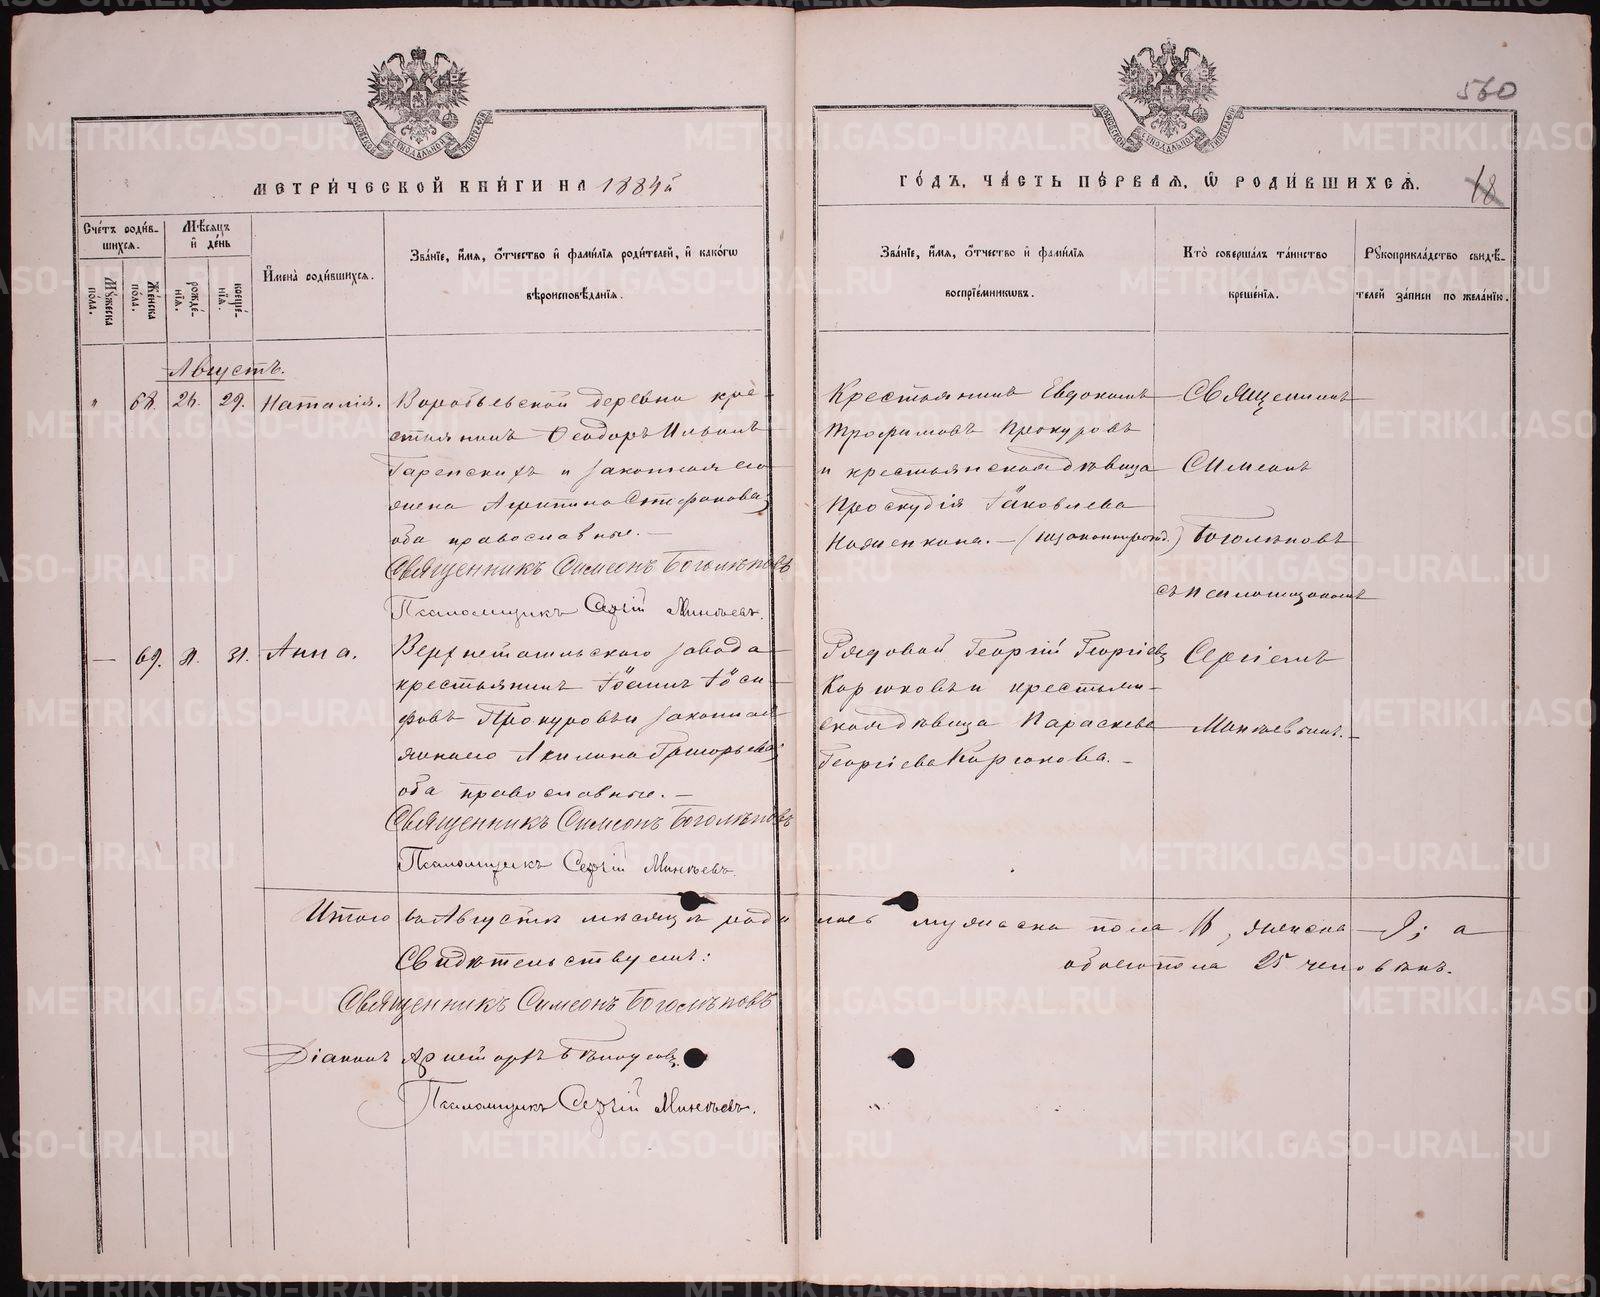 560
МЕТРИ́ЧЕСКОЙ КНИ́ГИ НА 1884й
ГО́ДЪ, ЧА́СТЬ ПЕ́РВАѦ, Ѡ҆ РОДИ́ВШИХСѦ.
18
Сче́тъ роди́в-
шихсѧ.
Мѣ́сѧцъ
и҆ де́нь
Мꙋ́жеска
по́ла.
Же́нска
по́ла.
рожде́-
нїѧ.
креще́-
нїѧ.
И҆мена̀ роди́вшихсѧ.
Зва́нїе, и҆́мѧ, ѻ҆́тчество и҆ фами́лїѧ роди́телей, и҆ како́гѡ
вѣроисповѣ́данїѧ.
Зва́нїе, и҆́мѧ, ѻ҆́тчество и҆ фами́лїѧ
воспрїе́мникѡвъ.
Кто̀ соверша́лъ та́инство
креще́нїѧ.
Рꙋкоприкла́дство свидѣ́-
телей за́писи по жела́нїю.
Августъ.
" 68. 26. 29. Наталія.
Воробьевской деревни кре-
стьянинъ Ѳеодоръ Ильинъ
и законная его
жена Стефанова,
оба православные. —
Священникъ Симеонъ Боголѣповъ
Псаломщикъ Сергій Минѣевъ.
Крестьянинъ Евдокимъ
Трофимовъ Прокуровъ
и крестьянская дѣвица
Проскудія Іаковлева
Священникъ
Симеонъ
Боголѣповъ
съ псаломщикомъ
— 69. 31. 31. Анна.
Верхнетагильскаго завода
крестьянинъ Іоаннъ Іоси-
фовъ Прокуровъ и законная
жена его Акилина Григорьева,
оба православные. —
Священникъ Симеонъ Боголѣповъ
Псаломщикъ Сергій Минѣевъ.
Рядовой Георгій Георгіевъ
Коржовъ и крестьян-
ская дѣвица Параскева
Георгіева Коржова. —
Сергіемъ
Минѣевымъ. —
Итого въ Августѣ мѣсяцѣ родилось мужеска пола 16, женска — 9; а
обоего пола 25 человѣкъ.
Свидѣтельствуемъ:
Священникъ Симеонъ Боголѣповъ
Діаконъ Бѣлоусовъ.
Псаломщикъ Сергій Минѣевъ.
METRIKI.GASO-URAL.RU